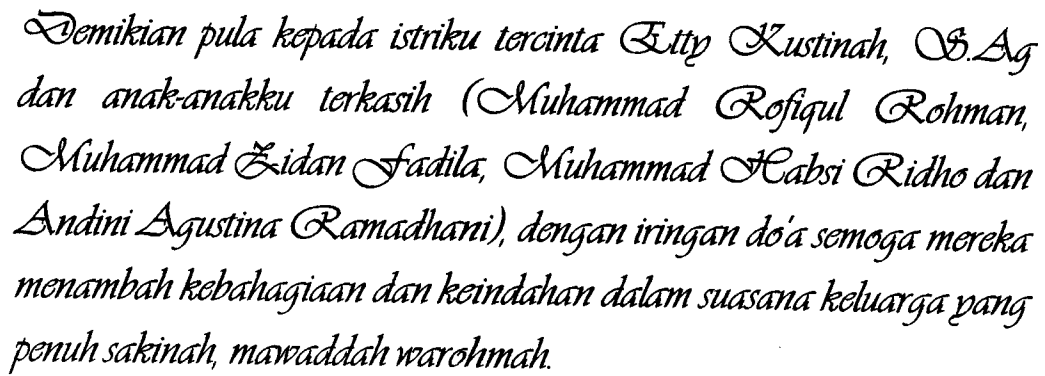 Demikian pula kepada istriku tercinta Etty Kustinah, S.Ag
dan anak-anakku terkasih (Muhammad Rofiqul Rohman,
Muhammad Zidan Fadila, Muhammad Habsi Ridho dan
Andini Agustina Ramadhani), dengan iringan do'a semoga mereka
menambah kebahagiaan dan keindahan dalam suasana keluarga yang
penuh sakinah, mawaddah warohmah.